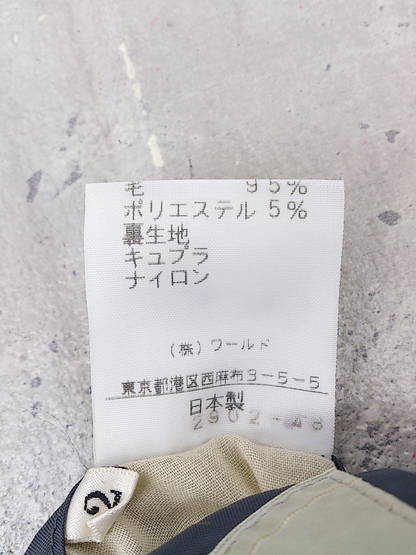 毛 95%
ポリエステル 5%
裏生地
キュプラ
ナイロン
(株)ワールド
東京都港区西麻布3-5-5
日本製
2